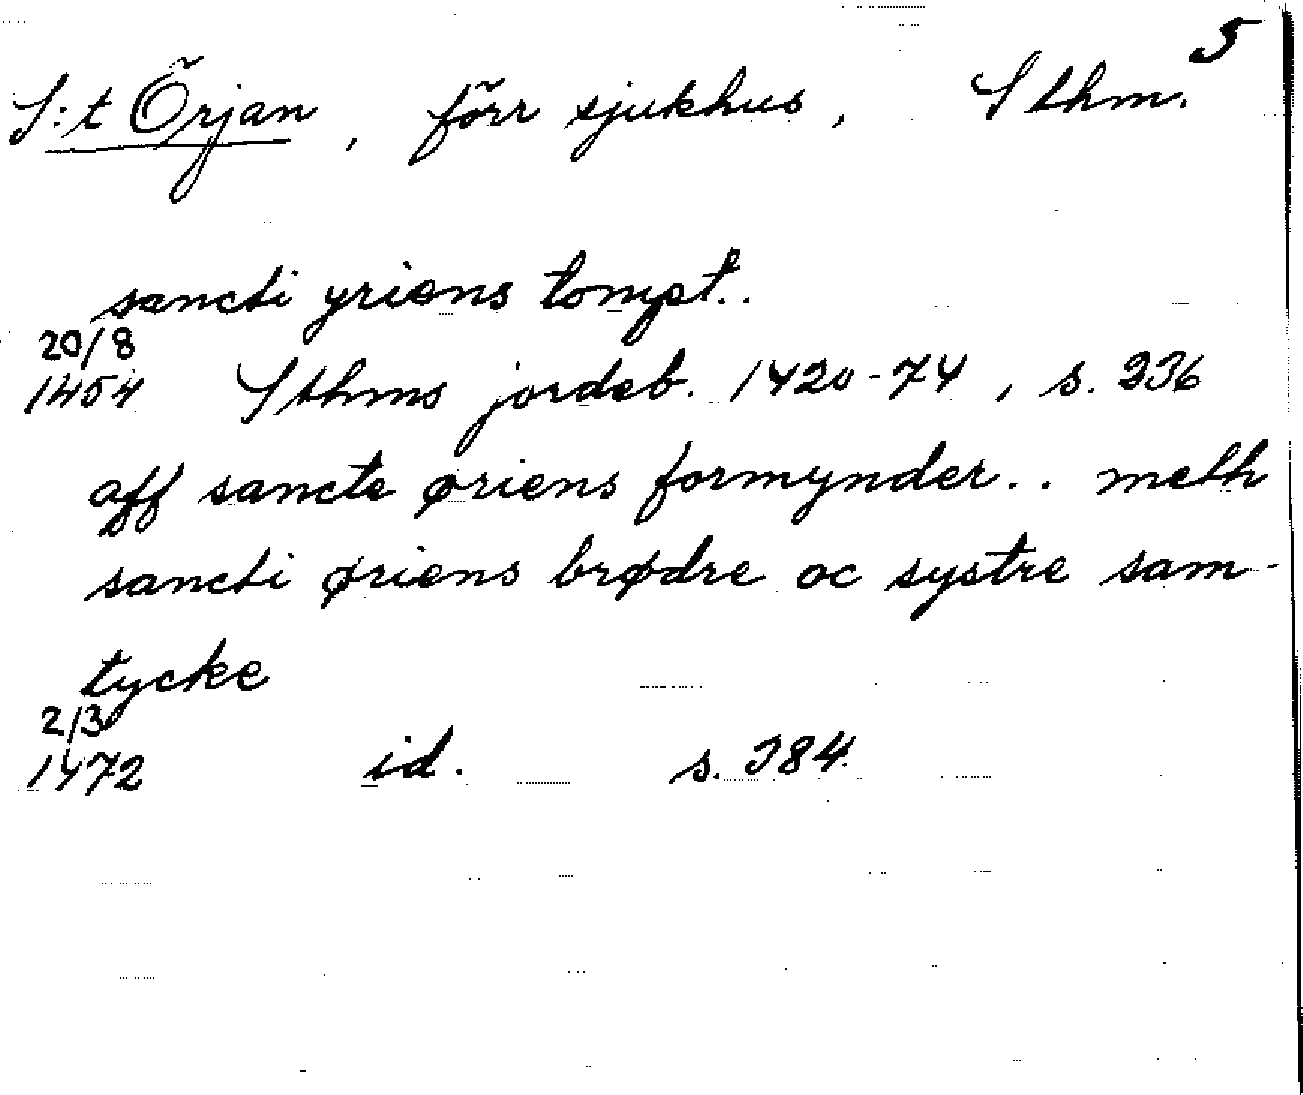 5
S:t Örjan, förr sjukhus, Sthm.
sancti yriens tompt..
20/8
1454 Sthms jordeb. 1420-74, s. 236
aff sancte øriens formynder.. meth
sancti øriens brødre oc systre sam-
tycke
2/3
1472 id. s. 384.